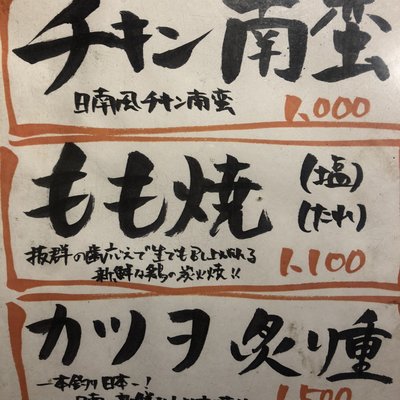 チキン南蛮
日南風チキン南蛮
1,000
もも焼
(塩)
(たれ)
抜群の歯応えで生でも召し上がれる
新鮮な鶏の炭火焼!!
1,100
カツヲ炙り重
一本釣り日本一!
1,500